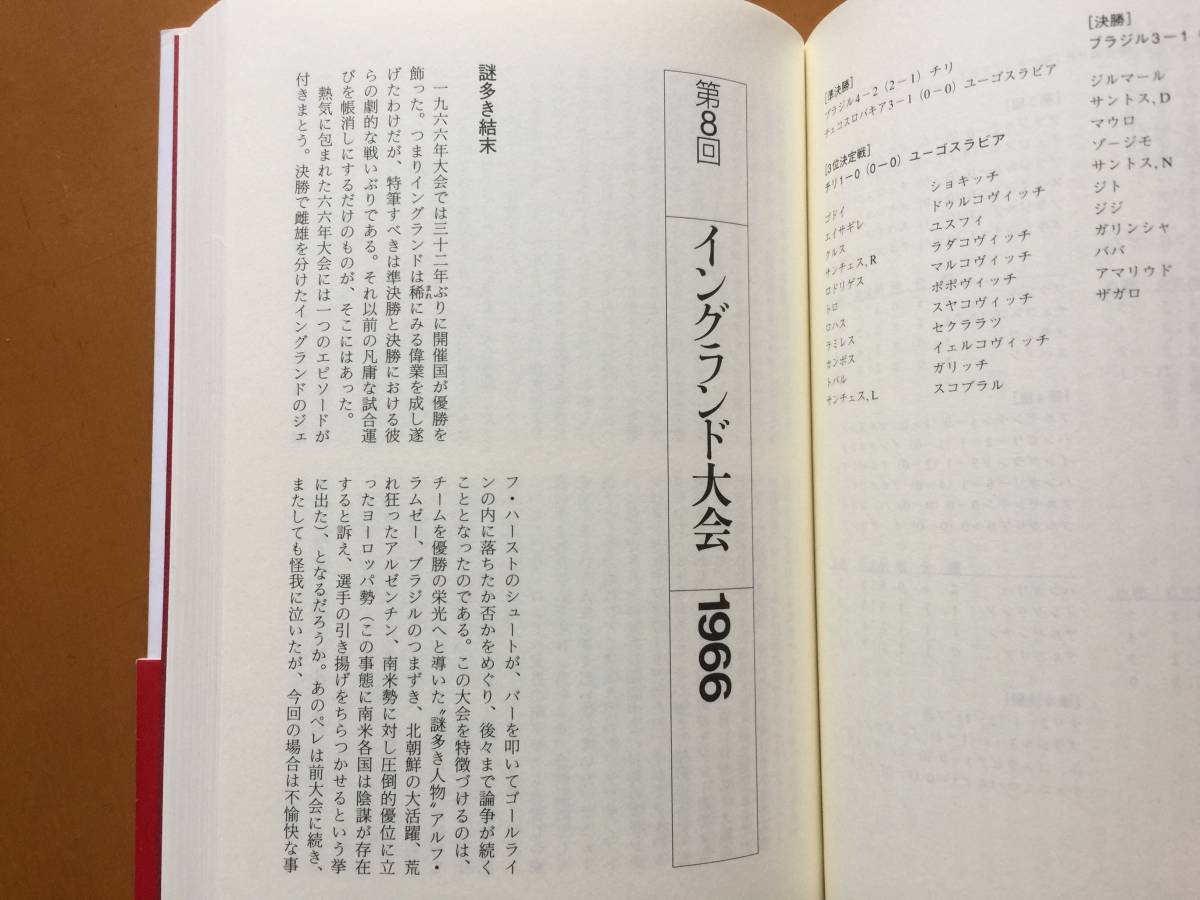 [準決勝]
ブラジル4−2(2−1)チリ
チェコスロバキア3−1(0−0)ユーゴスラビア
[3位決定戦]
チリ1−0(0−0)ユーゴスラビア
ゴドイ ショキッチ
エイサギレ ドゥルコヴィッチ
クルス ユスフィ
サンチェス,R ラダコヴィッチ
ロドリゲス マルコヴィッチ
トロ ポポヴィッチ
ロハス スヤコヴィッチ
ラミレス セクララツ
カンポス イェルコヴィッチ
トバル ガリッチ
サンチェス,L スコブラル
[決勝]
ブラジル3−1(
ジルマール
サントス,D
マウロ
ゾージモ
サントス,N
ジト
ジジ
ガリンシャ
ババ
アマリウド
ザガロ
第8回 イングランド大会 1966
謎多き結末
一九六六年大会では三十二年ぶりに開催国が優勝を
飾った。つまりイングランドは稀にみる偉業を成し遂
まれ
げたわけだが、特筆すべきは準決勝と決勝における彼
らの劇的な戦いぶりである。それ以前の凡庸な試合運
びを帳消しにするだけのものが、そこにはあった。
熱気に包まれた六六年大会には一つのエピソードが
付きまとう。決勝で雌雄を分けたイングランドのジェ
フ・ハーストのシュートが、バーを叩いてゴールライ
ンの内に落ちたか否かをめぐり、後々まで論争が続く
こととなったのである。この大会を特徴づけるのは、
チームを優勝の栄光へと導いた〝謎多き人物〟アルフ・
ラムゼー、ブラジルのつまずき、北朝鮮の大活躍、荒
れ狂ったアルゼンチン、南米勢に対し圧倒的優位に立
ったヨーロッパ勢(この事態に南米各国は陰謀が存在
すると訴え、選手の引き揚げをちらつかせるという挙
に出た)、となるだろうか。あのペレは前大会に続き、
またしても怪我に泣いたが、今回の場合は不愉快な事